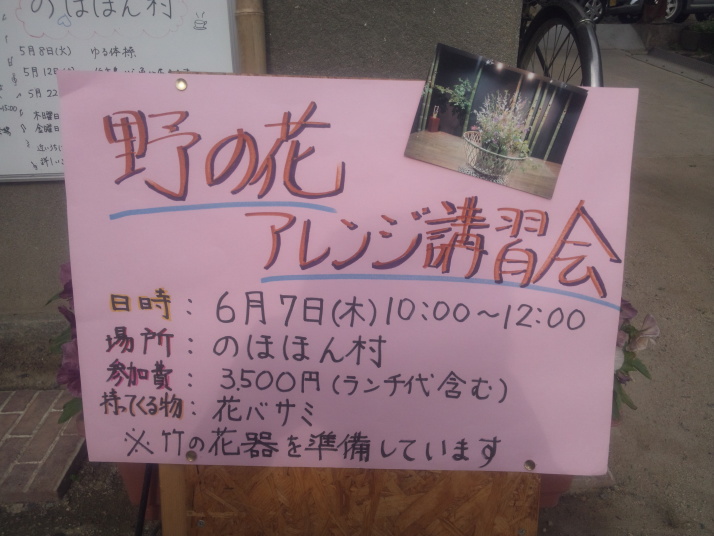 のほほん村
5月8日(火) ゆる体操
5月12日
5月22
木曜日
金曜日
野の花
アレンジ講習会
日時: 6月7日(木)10:00～12:00
場所: のほほん村
参加費: 3,500円(ランチ代含む)
持ってくる物: 花バサミ
※竹の花器を準備しています